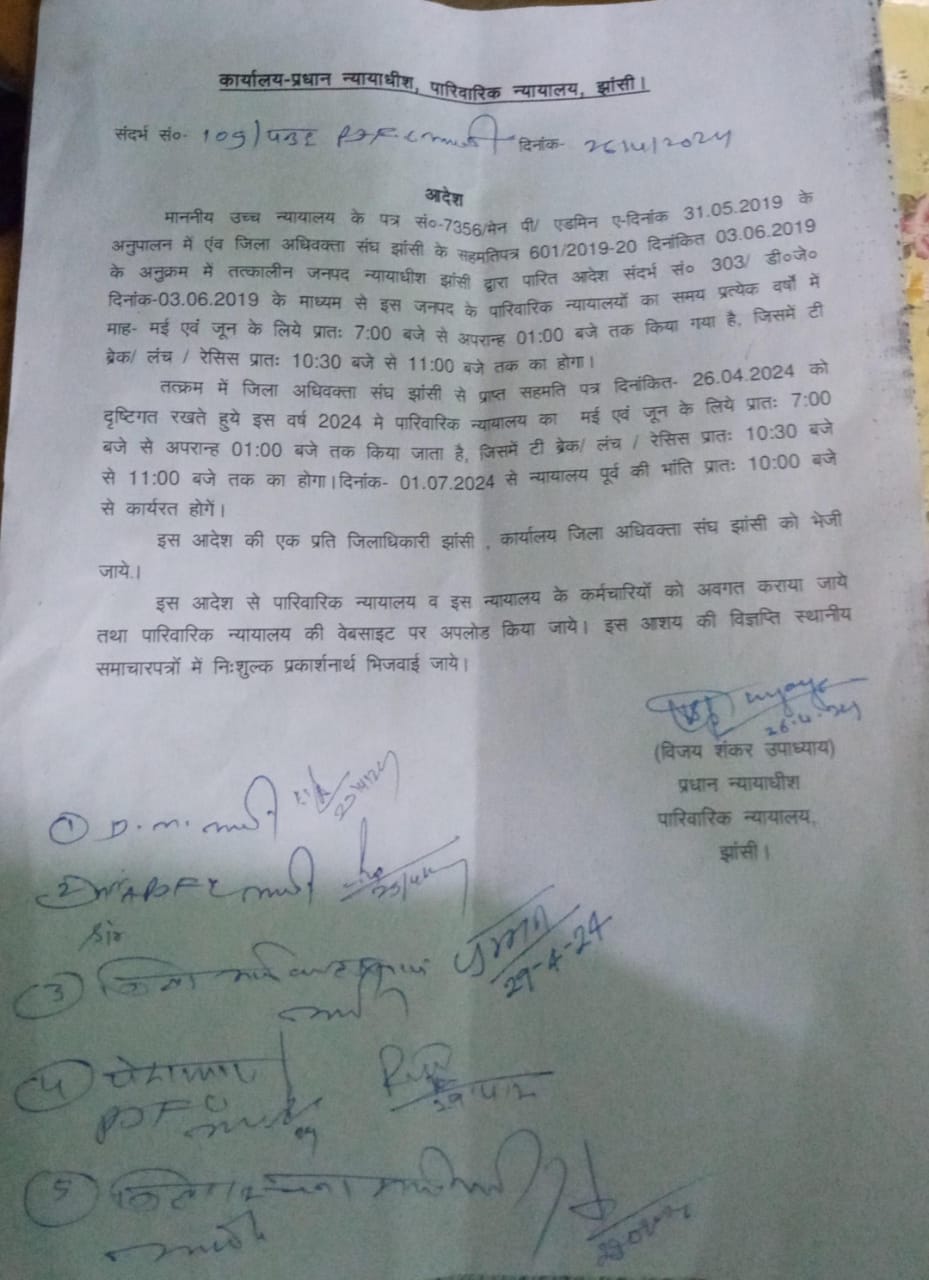 कार्यालय-प्रधान न्यायाधीश, पारिवारिक न्यायालय, झांसी।
संदर्भ सं०- 109/ PJFC झांसी दिनांक- 26/4/2024
आदेश
माननीय उच्च न्यायालय के पत्र सं०-7356/मेन पी/ एडमिन ए-दिनांक 31.05.2019 के
अनुपालन में एंव जिला अधिवक्ता संघ झांसी के सहमतिपत्र 601/2019-20 दिनांकित 03.06.2019
के अनुक्रम में तत्कालीन जनपद न्यायाधीश झांसी द्वारा पारित आदेश संदर्भ सं० 303/ डी०जे०
दिनांक-03.06.2019 के माध्यम से इस जनपद के पारिवारिक न्यायालयों का समय प्रत्येक वर्षों में
माह- मई एवं जून के लिये प्रातः 7:00 बजे से अपरान्ह 01:00 बजे तक किया गया है, जिसमें टी
ब्रेक/ लंच / रेसिस प्रातः 10:30 बजे से 11:00 बजे तक का होगा।
तत्क्रम में जिला अधिवक्ता संघ झांसी से प्राप्त सहमति पत्र दिनांकित- 26.04.2024 को
दृष्टिगत रखते हुये इस वर्ष 2024 मे पारिवारिक न्यायालय का मई एवं जून के लिये प्रातः 7:00
बजे से अपरान्ह 01:00 बजे तक किया जाता है, जिसमें टी ब्रेक/ लंच / रेसिस प्रातः 10:30 बजे
से 11:00 बजे तक का होगा।दिनांक- 01.07.2024 से न्यायालय पूर्व की भांति प्रातः 10:00 बजे
से कार्यरत होगें।
इस आदेश की एक प्रति जिलाधिकारी झांसी , कार्यालय जिला अधिवक्ता संघ झांसी को भेजी
जाये.।
इस आदेश से पारिवारिक न्यायालय व इस न्यायालय के कर्मचारियों को अवगत कराया जाये
तथा पारिवारिक न्यायालय की वेबसाइट पर अपलोड किया जाये। इस आशय की विज्ञप्ति स्थानीय
समाचारपत्रों में निःशुल्क प्रकार्शनार्थ भिजवाई जाये।
26.4.24
(विजय शंकर उपाध्याय)
प्रधान न्यायाधीश
पारिवारिक न्यायालय,
झांसी।
① D.M. झांसी
② APJFC झांसी
Sir
③ जिला झांसी
29-4-24
④ पेशकार
PJFC झांसी
⑤ जिला सूचना अधिकारी
झांसी